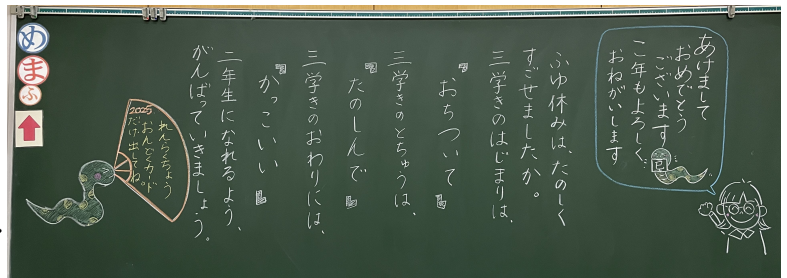 あけまして
おめでとう
ございます
ことし年もよろしく
おねがいします
ふゆ休みは、たのしく
すごせましたか。
三学きのはじまりは、
『おちついて』
三学きのとちゅうは、
『たのしんで』
三学きのおわりには、
『かっこいい』
二年生になれるよう、
がんばっていきましょう。
2025
れんらくちょう
おんどくカード
だけ出してね。
め
ま
ふ